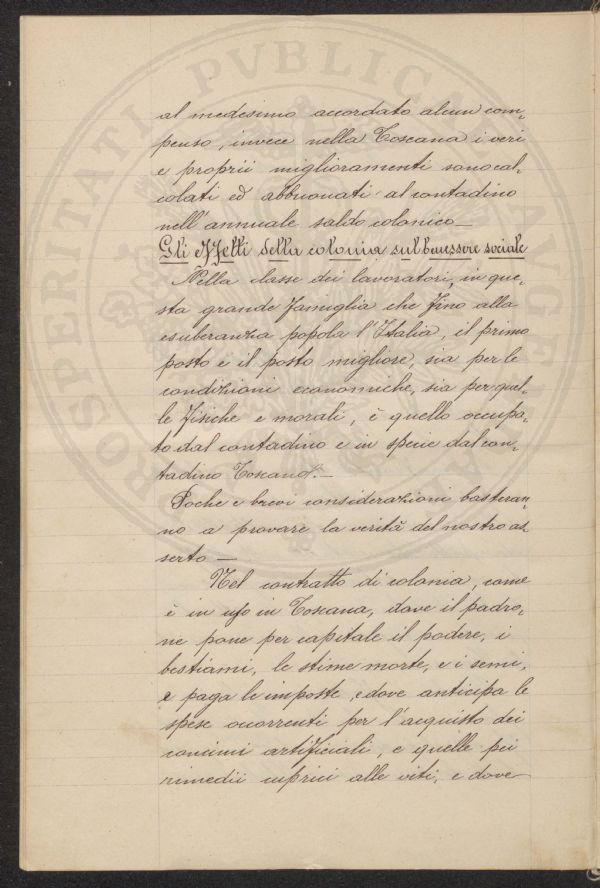 al medesimo accordato alcun com-
penso, invece nella Toscana i veri
e proprii miglioramenti sono cal-
colati ed abbuonati al contadino
nell'annuale saldo colonico—
Gli effetti della colonia sul benessere sociale
Nella classe dei lavoratori, in que-
sta grande famiglia che fino alla
esuberanza popola l'Italia, il primo
posto e il posto migliore, sia per le
condizioni economiche, sia per quel-
le fisiche e morali, è quello occupa-
to dal contadino e in specie dal con-
tadino Toscano.—
Poche e brevi considerazioni basteran-
no a provare la verità del nostro as-
serto—
Nel contratto di colonia, come
è in uso in Toscana, dove il padro-
ne pone per capitale il podere, i
bestiami, le stime morte, e i semi,
e paga le imposte, e dove anticipa le
spese occorrenti per l'acquisto dei
concimi artificiali, e quelle pei
rimedii cuprici alle viti, e dove
PROSPERITATI PVBLICAE AVGENDAE